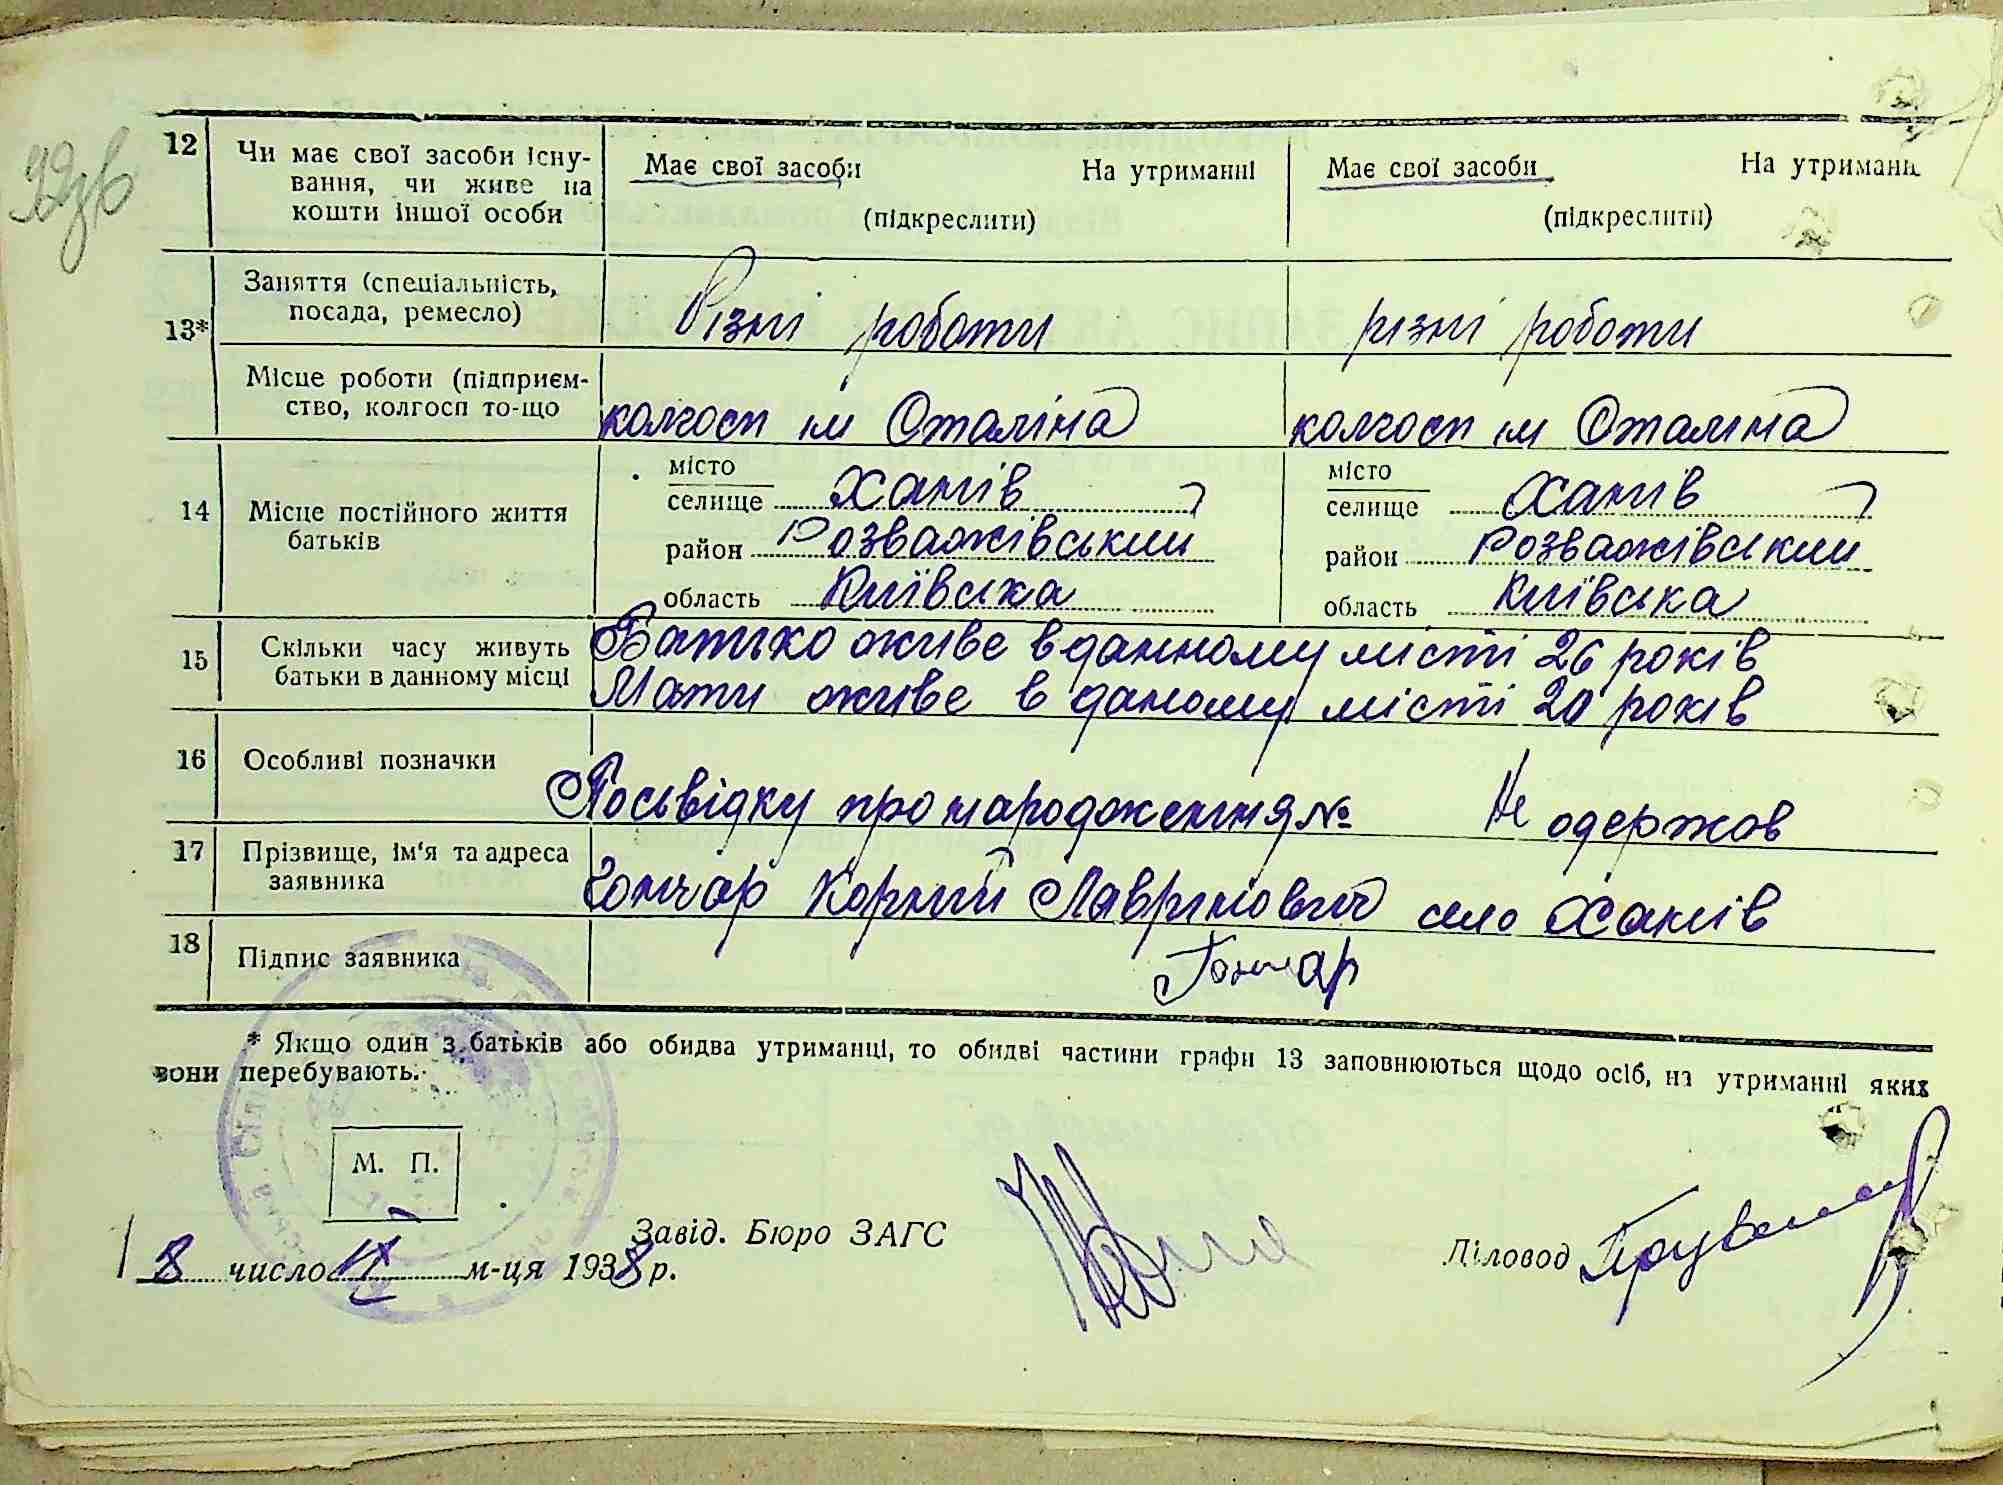 92зв
12 Чи має свої засоби існу-
вання, чи живе на
кошти іншої особи
Має свої засоби На утриманні
(підкреслити)
Має свої засоби На утриманн
(підкреслити)
13* Заняття (спеціальність,
посада, ремесло)
Різні роботи
різні роботи
Місце роботи (підприєм-
ство, колгосп то-що
колгосп ім Сталіна
колгосп ім Сталіна
14 Місце постійного життя
батьків
місто
селище Хамів
район Розважівський
область Київська
місто
селище Хамів
район Розважівский
область Київська
15 Скільки часу живуть
батьки в данному місці
Батько живе в данному місті 26 років
Мати живе в даному місті 20 років
16 Особливі позначки
Посьвідку про народження № Не одержав
17 Прізвище, ім'я та адреса
заявника
Гончар Корній Лаврінович село Хамів
18 Підпис заявника
Гончар
* Якщо один з батьків або обидва утриманці, то обидві частини графи 13 заповнюються щодо осіб, на утриманні яких
вони перебувають.
М. П.
8 число ІХ м-ця 1938 р.
Завід. Бюро ЗАГС
Діловод